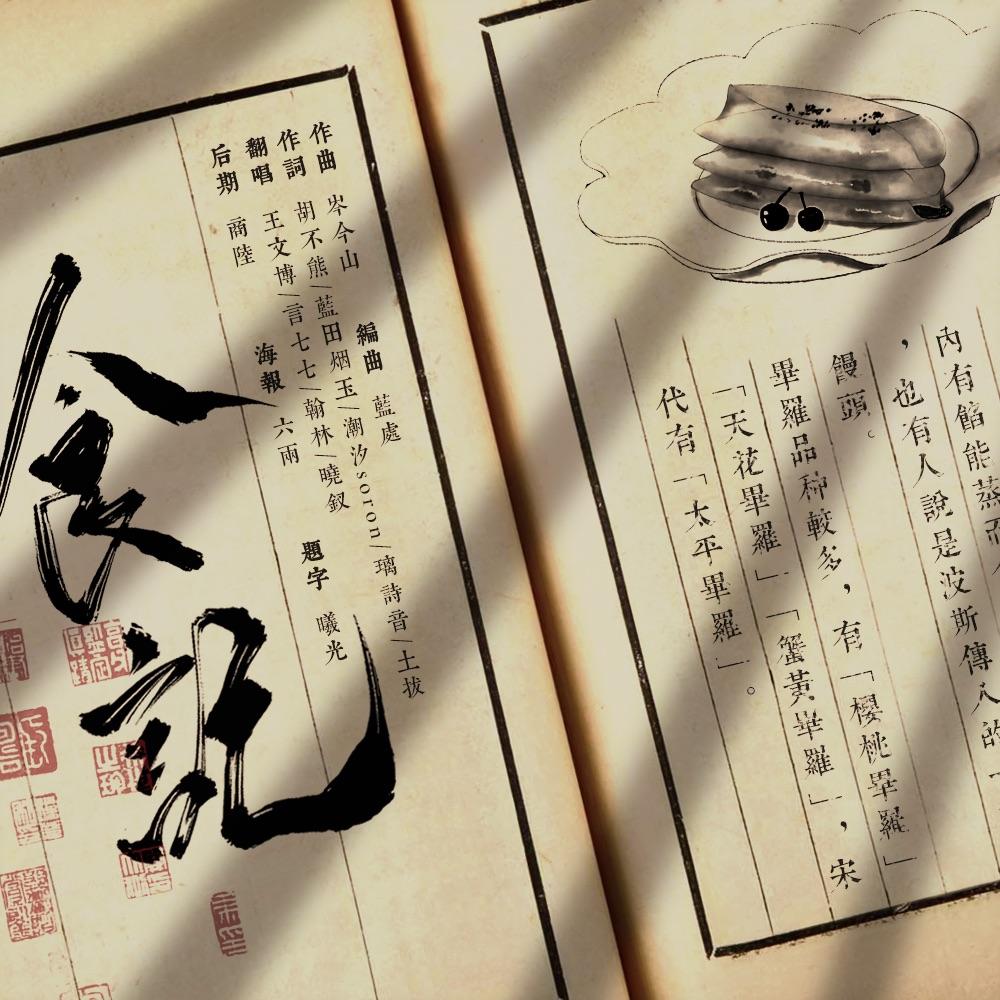 內有餡能蒸而
，也有人說是波斯傳入的「
饅頭。
畢羅品种較多，有「櫻桃畢羅」
「天花畢羅」「蟹黃畢羅」，宋
代有「太平畢羅」。
作曲 岑今山 編曲 藍處
作詞 胡不熊/藍田烟玉/潮汐soron/璃詩音/土拔
翻唱 王文博/言七七/翰林/曉釵
后期 商陸 海報 六兩 題字 曦光
食記